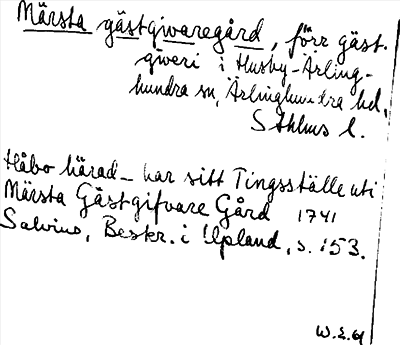 Märsta gästgivaregård, förr gäst-
giveri i Husby-Ärling-
hundra sn, Ärlinghundra hd,
Sthlms l.
Håbo härad - har sitt Tingsställe uti
Märsta Gästgifvare Gård 1741
Salvius, Beskr. i Upland, s. 153.
W.E. 61